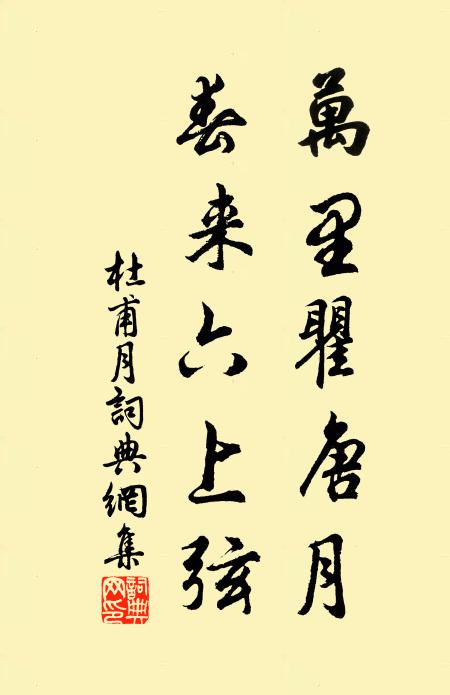 萬里瞿唐月
春来六上弦
杜甫月詞典網集
詞典網印